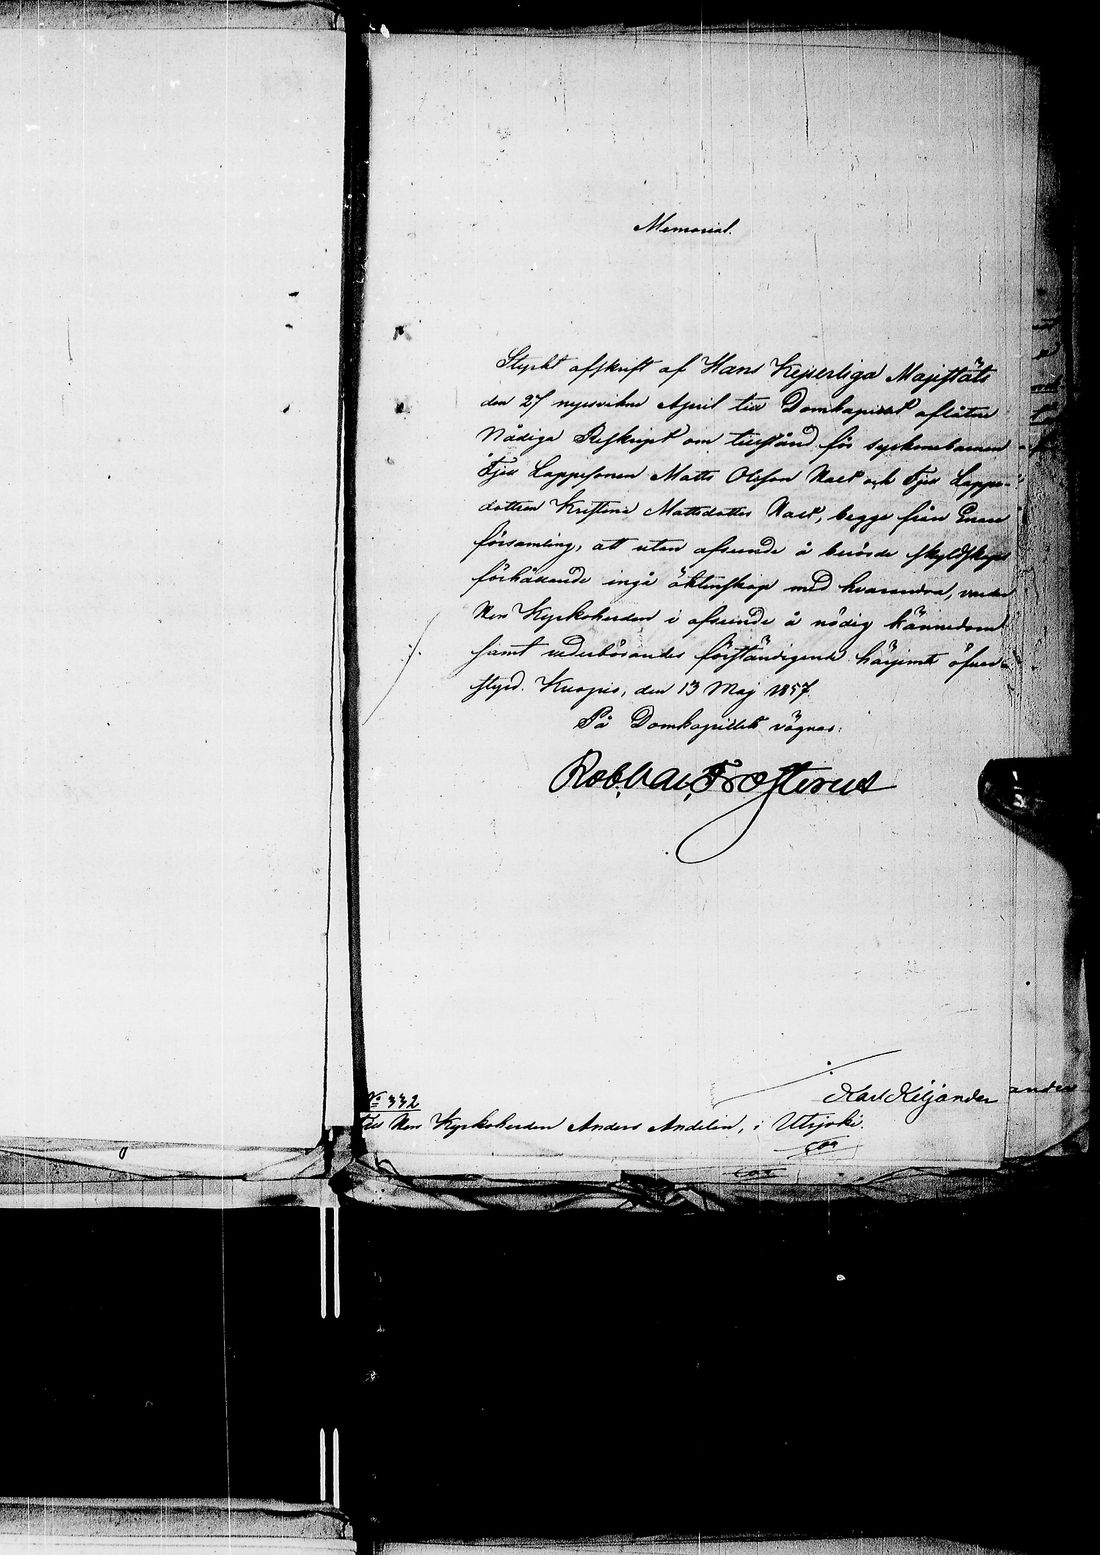 Memorial.
Styrkt afskrift af Hans Kejserliga Majestäts
den 27 nyssvikne April till Domkapitlet aflåtne
Nådiga Reskript om tillstånd för syskonebarnen
Fjell Lappesonen Matts Olsson Valt och Fjell Lappe-
dottren Kristina Mattsdotter Valt, begge från Enare
församling, att utan afseende å berörde skyldskaps
förhållande ingå äktenskap med hvarandra, varder
Herr Kyrkoherden i afseende å nödig kännedom
samt vederbörandes förständigande härjemte öfver-
styrd. Kuopio, den 13 Maj 1857.
På Domkapitlets vägnar:
Rob. Val. Frosterus
Karl Kiljander
№ 332
Till Herr Kyrkoherden Anders Andelin, i Utsjoki.